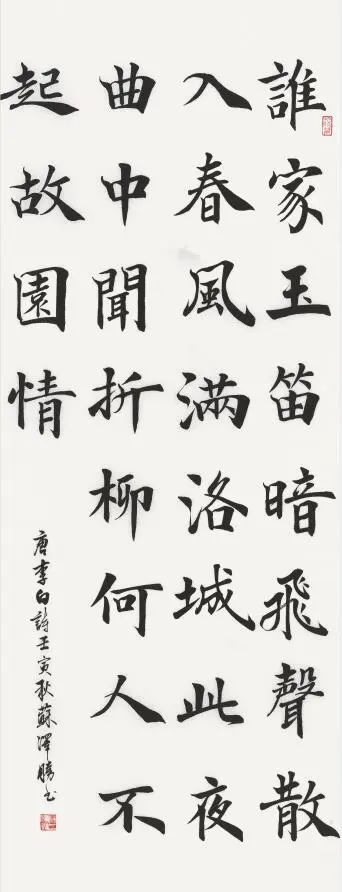 誰家玉笛暗飛聲散
入春風滿洛城此夜
曲中聞折柳何人不
起故園情
唐李白詩壬寅秋蘇澤勝书